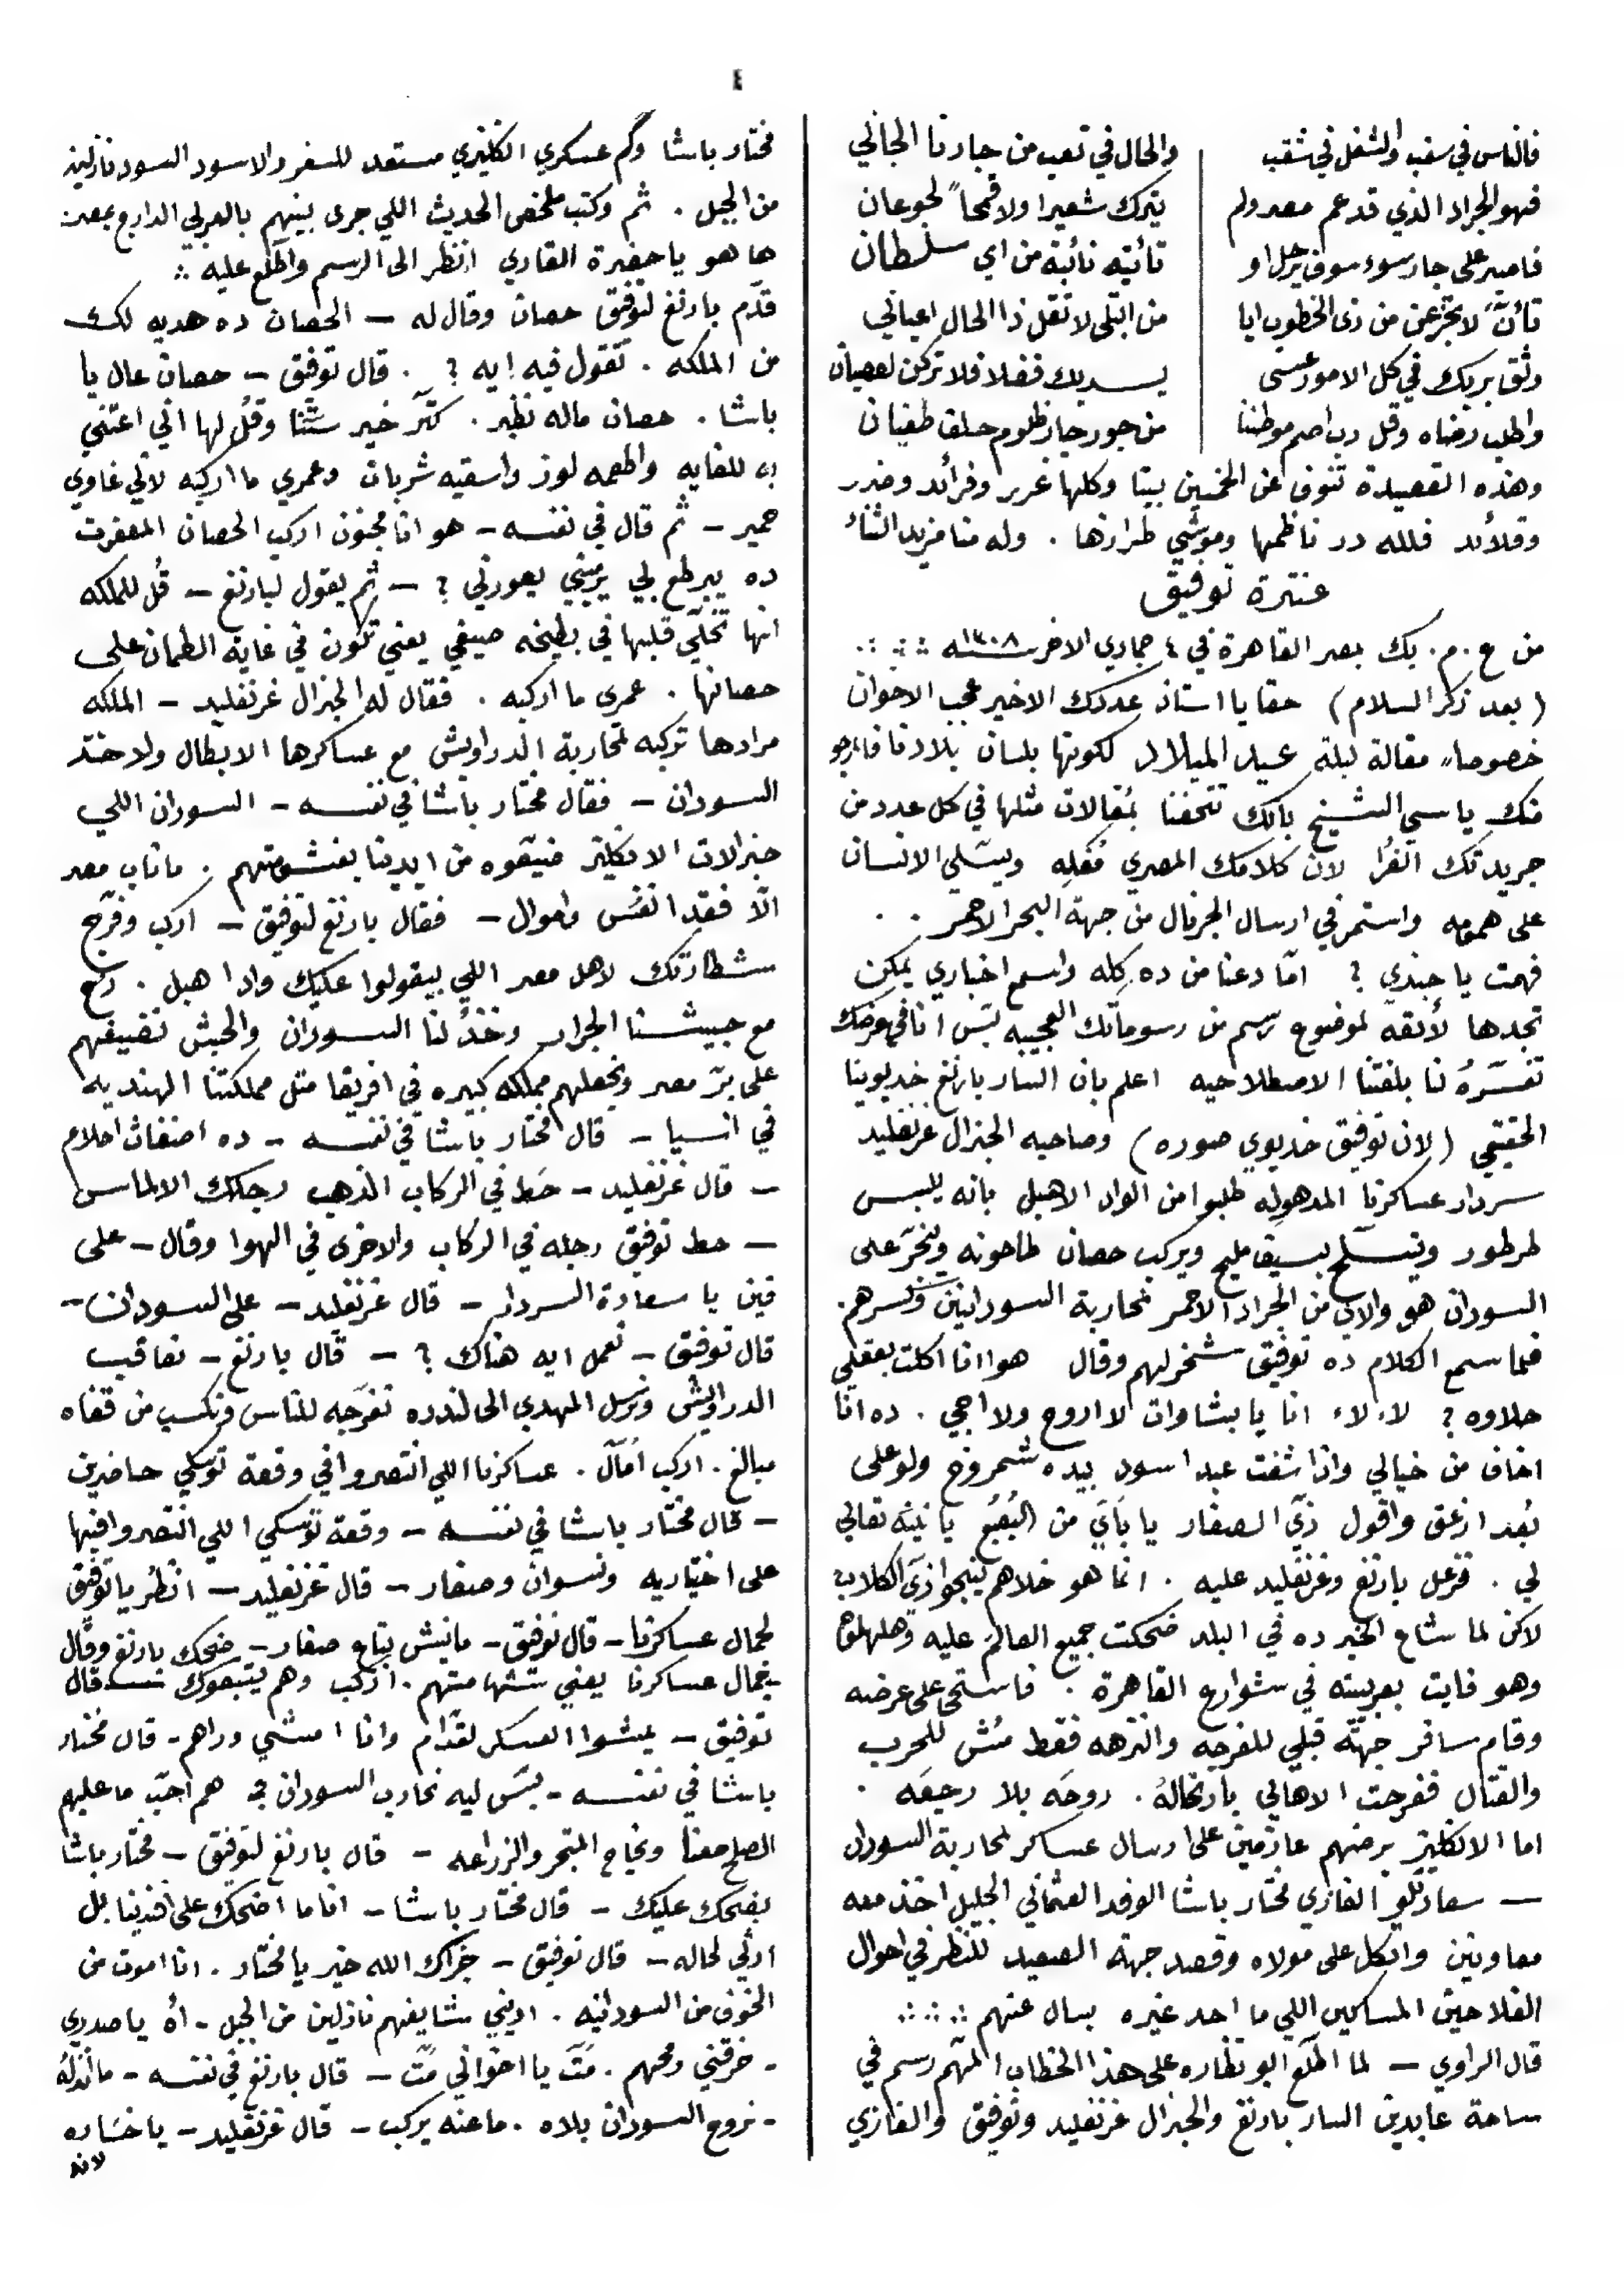 ٤
فالناس في سغب والشغل في شغب
والحال في تعب من جارنا الجاني
فهو الجراد الذي قد عم مصر ولم
يترك شعيرا ولا قمحاً لجوعان
فاصبر على جار سوء سوف يرحل او
تأتيه نائبة من اي سلطان
تأنَّ لا تجزعن من ذى الخطوب ايا
من ابتلى لا تقل ذا الحال اعياني
وثق بربك في كل الامور عسى
يسديك فضلا فلا تركن لعصيان
واطلب رضاه وقل رب احم موطننا
من جور جار ظلوم حلف طغيان
وهذه القصيدة تنوف عن الخمسين بيتا وكلها غرر وفرائد ودرر
وقلائد فلله در ناظمها وموشي طرازها . وله منا مزيد الثناء
عنترة توفيق
من ع . م . بك بمصر القاهرة في ٤ جمادي الاخر سنة ١٣٠٨
(بعد ذكر السلام) حقا يا استاذ عددك الاخير عجب الاخوان
خصوصاً مقالة ليلة عيد الميلاد لكونها بلسان بلادنا فالمرجو
منك يا سي الشيخ بانك تتحفنا بمقالات مثلها في كل عدد من
جريدتك الغرا لان كلامك المصري مُفَلِه ويسّلي الانسان
على همومه واستمر في ارسال الجرنال من جهة البحر الاحمر .
فهمت يا جندي ? امّا دعنا من ده كله واسمع اخباري يمكن
تجدها لائقه لموضوع رسم من رسوماتك العجيبه بَس انا في عرضك
تفسّرهُ لنا بلغتنا الاصطلاحيه اعلم بان السار بارنغ خديوينا
الحقيقي (لان توفيق خديوي صوره) وصاحبه الجنرال غرنفليد
سردار عساكرنا المدهوله طلبوا من الواد الاهبل بانه يلبس
طرطور ويتسلّح بسيف مليح ويركب حصان طاحونه ويتجرّ على
السودان هو والاي من الجراد الاحمر لمحاربة السودانيين وكسرهم
فلما سمع الكلام ده توفيق شخر لهم وقال هو انا اكلت بعقلي
حلاوه ? لاء لاء انا يا بشاوات لا اروح ولا اجي . ده انا
اخاف من خيالي واذا شفت عبد اسود بيده شمروخ ولو على
بُعد ازعق واقول زيّ الصغار يا بَاىَ من البُعبُع يا نينة تعالي
لي . فزعل بارنغ وغرنفليد عليه . انما هو خلاهم ينبحوا زى الكلاب
لاكن لما شاع الخبر ده في البلد ضحكت جميع العالم عليه وهلهلوه
وهو فايت بعربيته في شوارع القاهرة . فاستحى على عرضه
وقام سافر جهة قبلي للفرجه والنزهه فقط مُش للحرب
والقتال ففرحت الاهالي بارتحالهُ . روحَه بلا رجعَه .
اما الانكليز برضهم عازمين على ارسال عساكر لمحاربة السودان
— سعادتلو الغازي مختار باشا الوفد العثماني الجليل اخذ معه
معاونين واتكل على مولاه وقصد جهة الصعيد للنظر في احوال
الفلاحين المساكين اللي ما احد غيره بسال عنهم
قال الراوي — لما اطّلع ابو نظاره على هذا الخطاب المهّم رسم في
ساحة عابدين السار بارنغ والجنرال غرنفليد وتوفيق والغازي
مختار باشا وكم عسكري انكليزي مستعد للسفر والاسود السود نازلين
من الجبل . ثم وكتب ملخص الحديث اللي جرى بينهم بالعربي الدارج بمصر
ها هو يا حضرة القاري انظر الى الرسم واطّلع عليه
قدّم بارنغ لتوفيق حصان وقال له — الحصان ده هديه لك
من الملكه . تقول فيه ايه ? . قال توفيق — حصان عال يا
باشا . حصان ماله نظير . كتّر خير ستّنا وقُل لها اني اعتني
به للغايه واطعمه لوز واسقيه شربات وعمري ما اركبه لاني غاوي
حمير — ثم قال في نفسه — هو انا مجنون اركب الحصان المعفرت
ده يبرطع بي يرميني يعورني ? — ثم يقول لبارنغ — قُل للملكه
انها تخلّي قلبها في بطيخه صيفي يعني تكون في غاية الطمان على
حصانها . عمرى ما اركبه . فقال له الجنرال غرنفليد — الملكه
مرادها تركبه لمحاربة الدراويش مع عساكرها الابطال ولاخذ
السودان — فقال مختار باشا في نفسه — السودان اللي
جنرالات الانكليز ضيّعوه من ايدينا بغشومتهم . ما ناب مصر
الّا فقد انفس واموال — فقال بارنغ لتوفيق — اركب وفرّج
شطارتك لاهل مصر اللي بيقولوا عليك واد اهبل . رُح
مع جيشنا الجرار وخذُ لنا السودان والحبش نضيفهم
على برّ مصر ونجعلهم مملكه كبيره في افريقا مثل مملكتنا الهنديه
في اسيا — قال مختار باشا في نفسه — ده اضغاث احلام
— قال غرنفليد — حَط في الركاب الذهب رجلك الالماس
— حط توفيق رجله في الركاب والاخرى في الهوا وقال — على
فين يا سعادة السردار — قال غرنفليد — على السودان —
قال توفيق — نعمل ايه هناك ? — قال بارنغ — نعاقب
الدراويش ونرسل المهدي الى لندره نفرّجه للناس ونكسب من قفاه
مبالغ . اركب امّال . عساكرنا اللي انتصروا في وقعة توسكي حاضرين
— قال مختار باشا في نفسه — وقعة توسكي اللي انتصروا فيها
على اختياريه ونسوان وصغار — قال غرنفليد — انظُر يا توفيق
لجمال عساكرنا — قال توفيق — مانيش بتاع صغار — ضحك بارنغ وقال
جمال عساكرنا يعني شهامتهم . اركب وهم يتبعوك — قال
توفيق — يمشوا العسكر لقدّام وانا امشي وراهم — قال مختار
باشا في نفسه — بَس ليه نحارب السودان ? هم احبّ ما عليهم
الصلح معنا ونجاح المتجر والزراعه — قال بارنغ لتوفيق — مختار باشا
بضحك عليك — قال مختار باشا — انا ما اضحك على افندينا بل
ارثي لحاله — قال توفيق — جزاك الله خير يا مختار . انا اموت من
الخوف من السودانيه . اديني شايفهم نازلين من الجبل — اهْ يا صدري
— خرقني رمحهم . مُتّ يا اخواني مُتّ — قال بارنغ في نفسه —
— نروح السودان بلاه . ما عنه يركب — قال غرنفليد — يا خساره
لانه